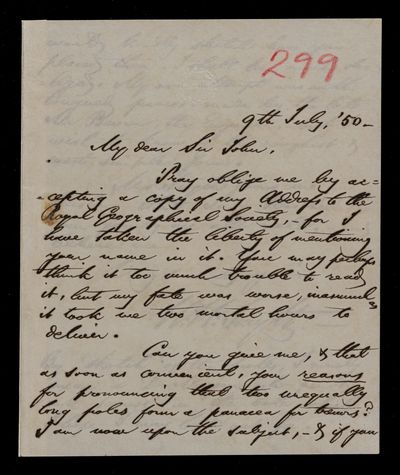 299
9th July, '50 -
My dear Sir John,
Pray oblige me by ac=
-cepting a copy of my Address to the
Royal Geographical Society, - for I
have taken the liberty of mentioning
your name in it. You may perhaps
think it too much trouble to read
it, but my fate was worse, inasmuch as
it took me two mortal hours to
deliver.
Can you give me, & that
as soon as convenient, your reasons
for pronouncing that two unequally
long poles form a panacea for
I am now upon the subject, - & if you